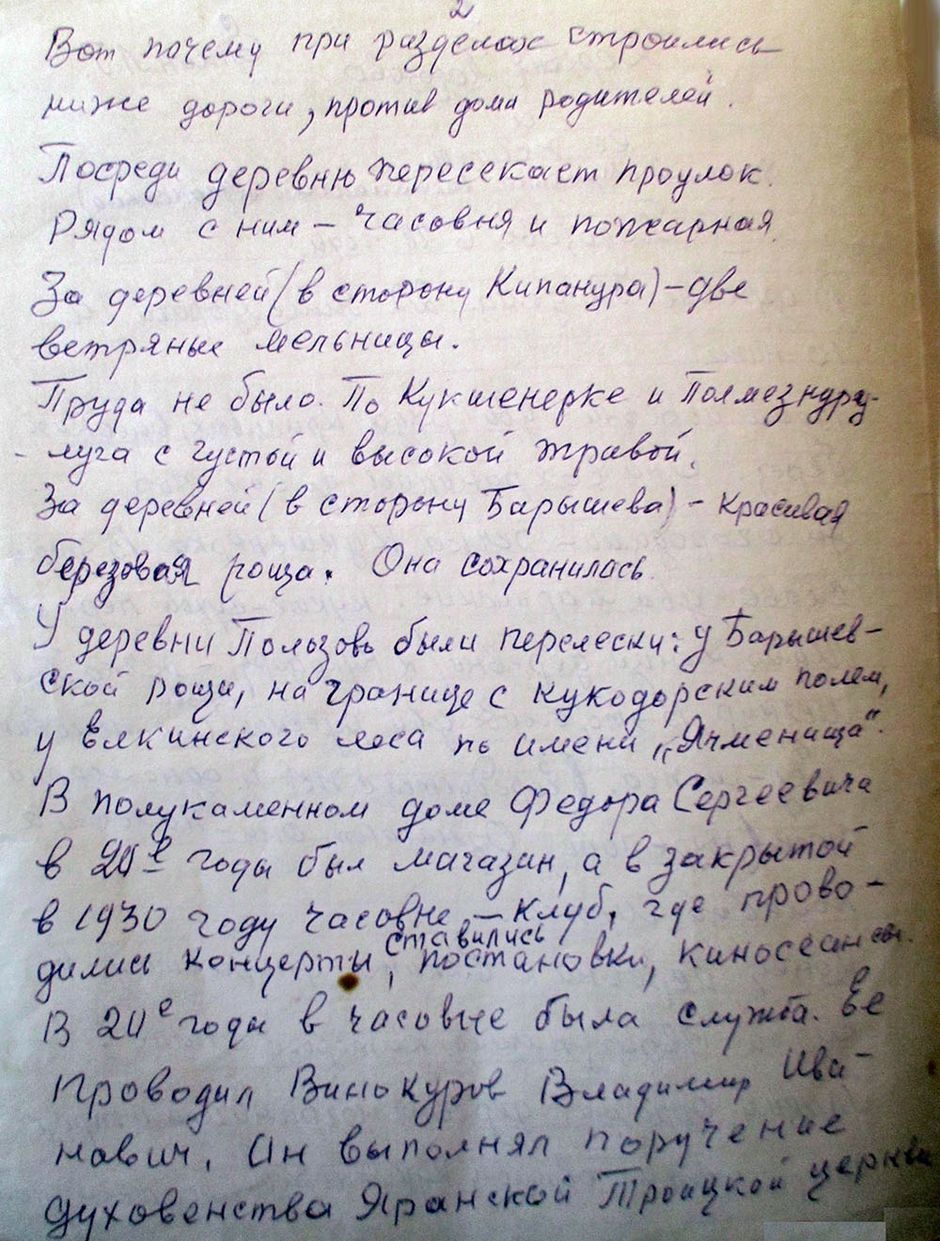 2
Вот почему при разделах строились
ниже дороги, против дома родителей.
Посреди деревню пересекает проулок.
Рядом с ним – часовня и пожарная.
За деревней (в сторону Кипанура) – две
ветряные мельницы.
Пруда не было. По Кукшенерке и Полмезнуру –
луга с густой и высокой травой.
За деревней (в сторону Барышева) – красивая
березовая роща. Она сохранилась.
У деревни Ползовь были перелески: у Барышев-
ской рощи, на границе с кукодорским полем,
у Елкинского леса по имени „Ячменища".
В полукаменном доме Федора Сергеевича
в 20е годы был магазин, а в закрытой
в 1930 году часовне – клуб, где прово-
ставились
дились концерты, постановки, киносеансы.
В 20е годы в часовне была служба. Ее
проводил Винокуров Владимир Ива-
нович. Он выполнял поручение
духовенства Яранской Троицкой церкви